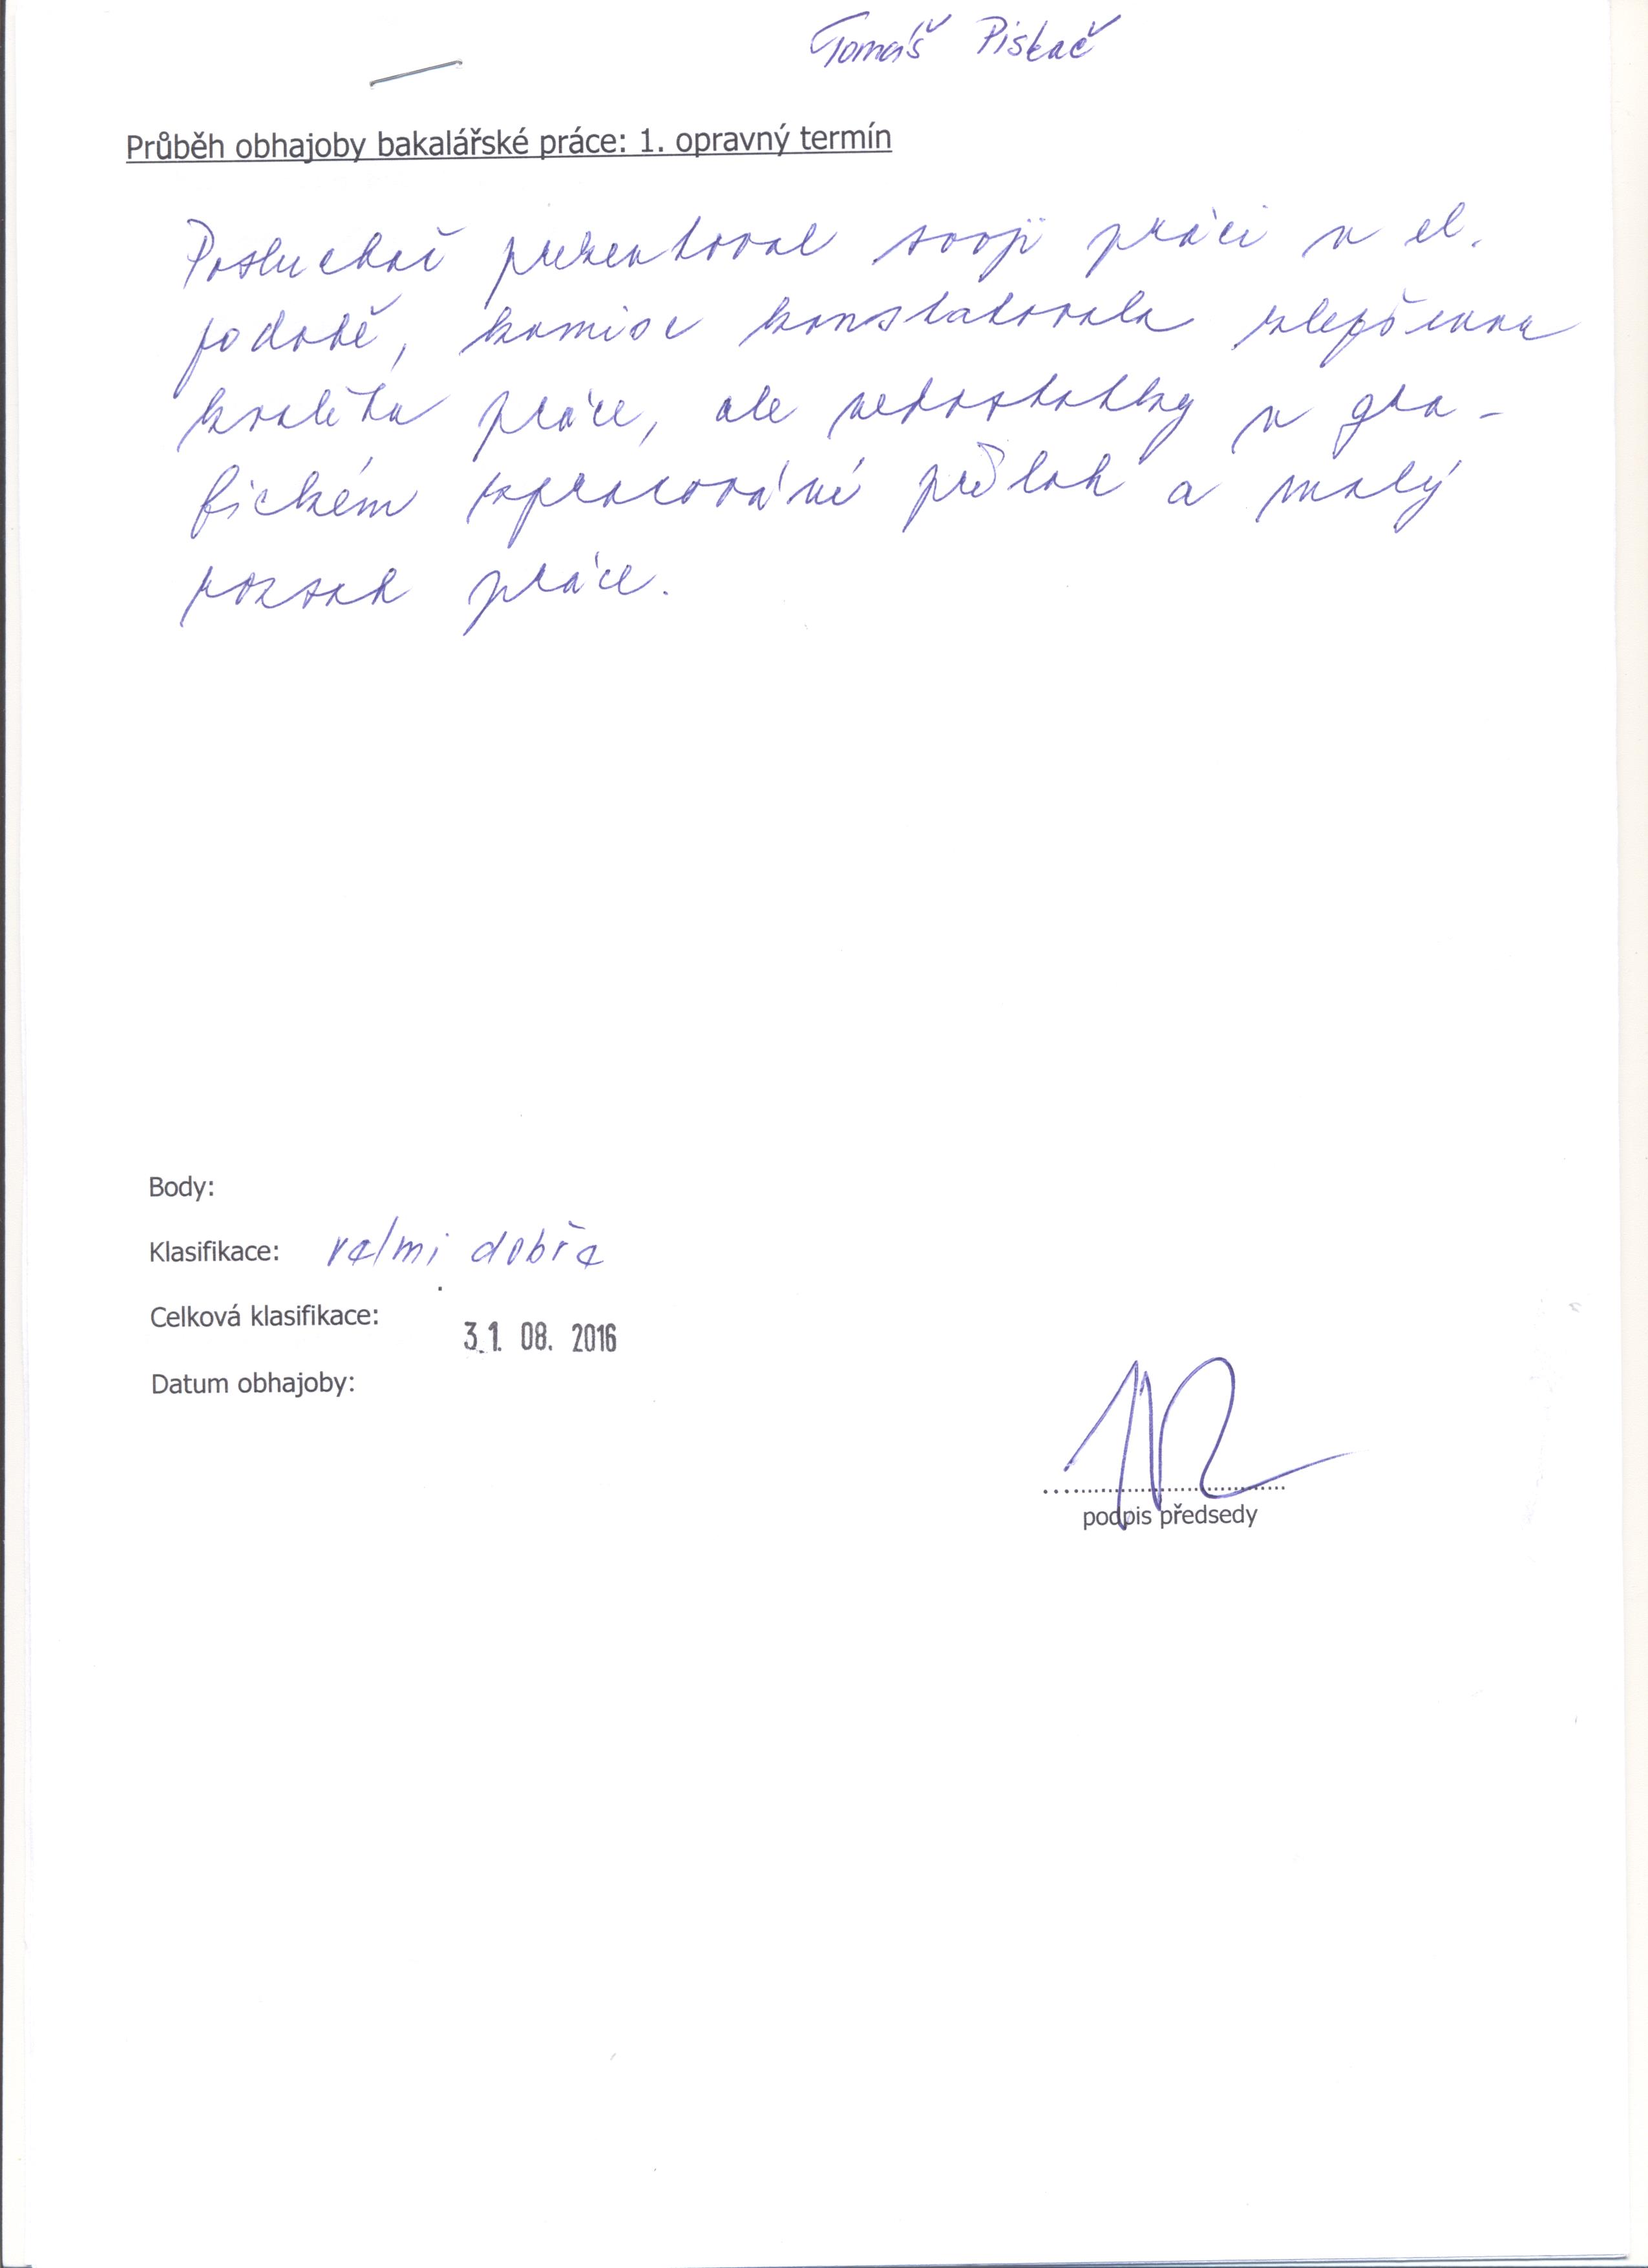 Tomáš Piskač
Průběh obhajoby bakalářské práce: 1. opravný termín
Posluchač prezentoval svoji práci v el.
podobě, komise konstatovala zlepšenou
kvalitu práce, ale nedostatky v gra-
fickém zpracování příloh a malý
rozsah práce.
Body:
Klasifikace: velmi dobře
Celková klasifikace:
31. 08. 2016
Datum obhajoby:
podpis předsedy